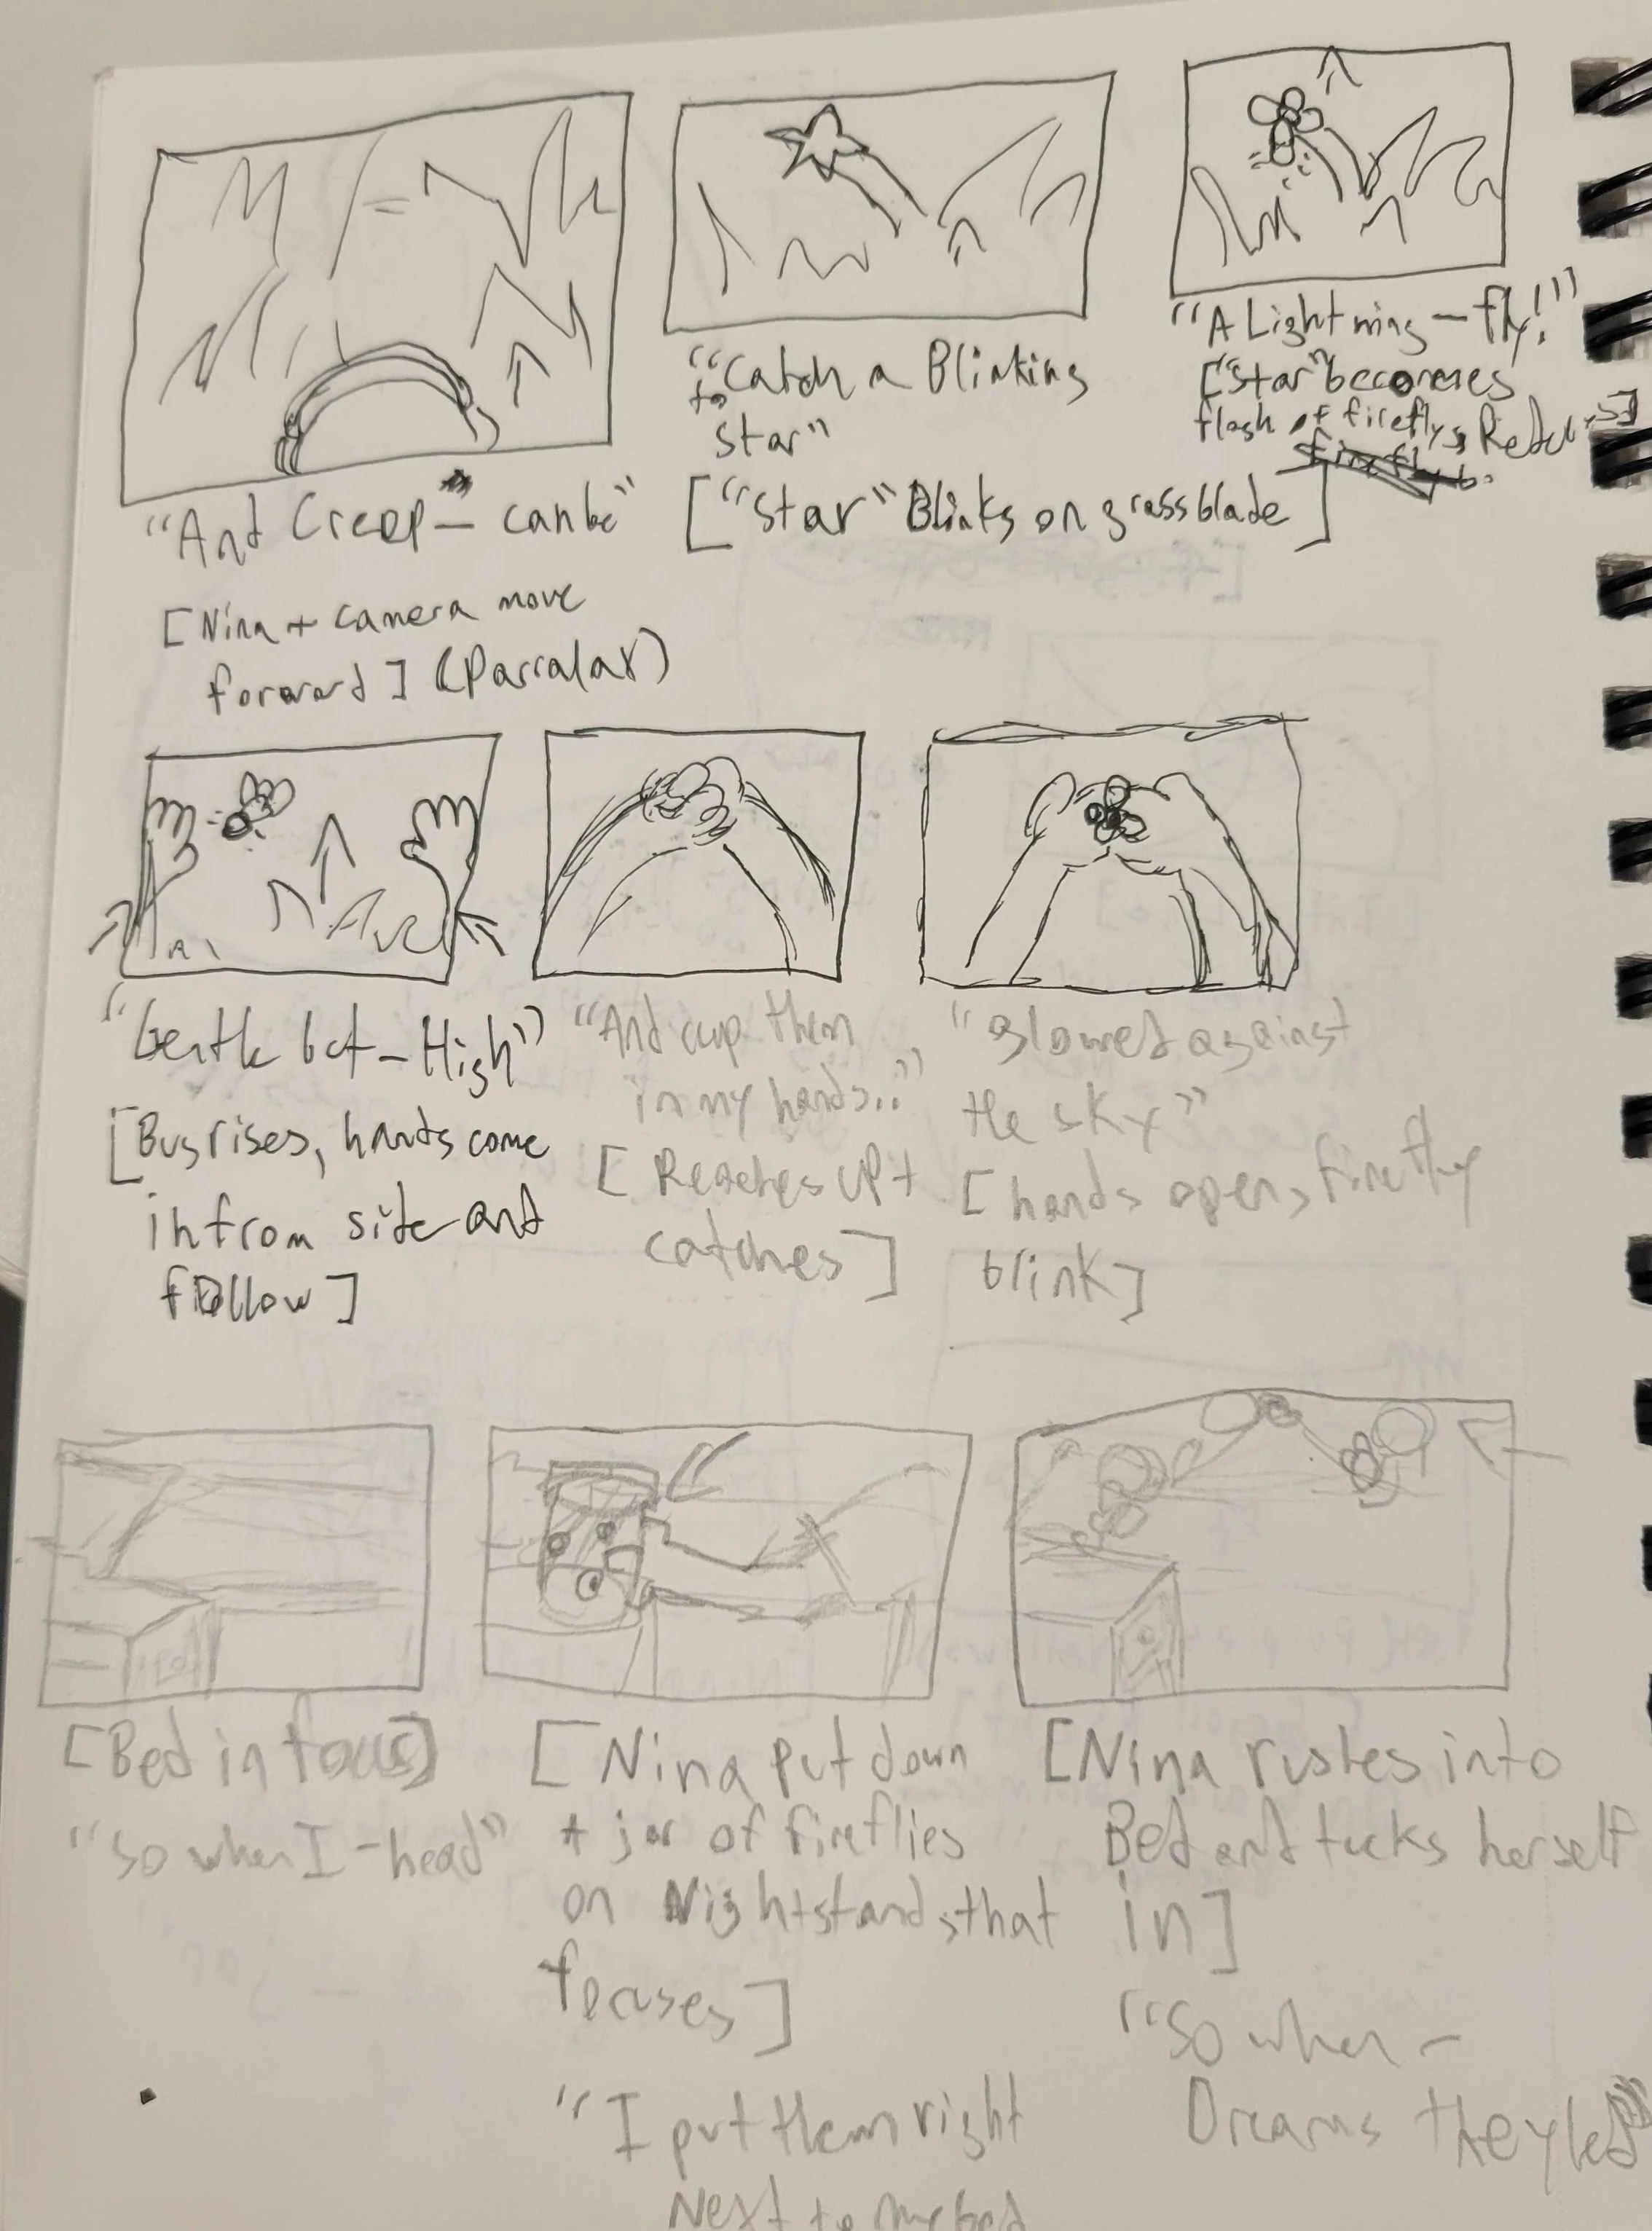 "And Creep – can be"
[Nina + camera move
forward] (Parralax)
"to Catch a Blinking
Star"
["Star" Blinks on grass blade]
"A Lightning – fly!"
["Star" becomes
flash of firefly,
"Gentle but – High"
[Bug rises, hands come
in from side and
follow]
"And cup them
in my hands.."
[Reaches up +
catches]
"glowed against
the sky"
[hands open, firefly
blink]
[Bed in focus]
"So when I – head"
[Nina put down
+ jar of fireflies
on Nightstand, that
focuses]
"I put them right
Next to my bed
[Nina rushes into
Bed and tucks herself
in]
"So when –
Dreams they led"